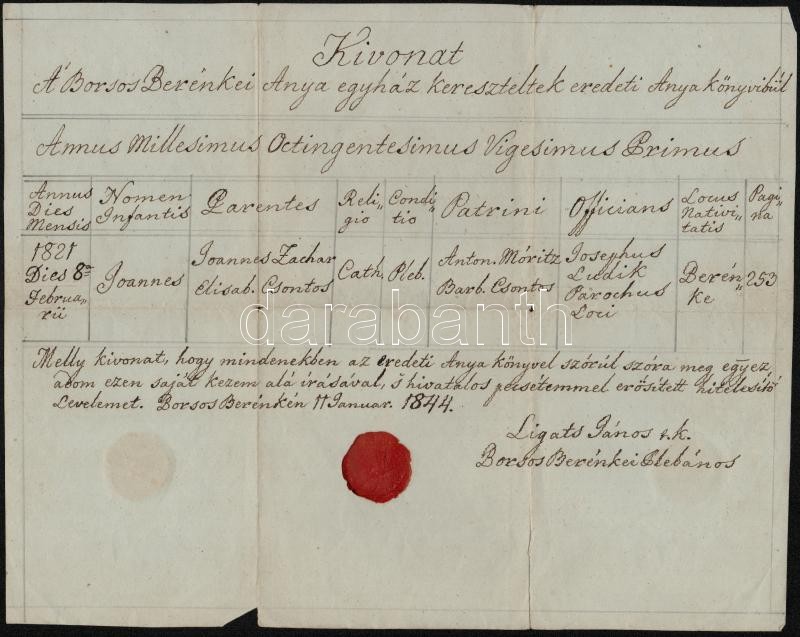 Kivonat
A' Borsos Berénkei Anya egyház kereszteltek eredeti Anya könyvibűl
Annus Millesimus Octingentesimus Vigesimus Primus
Annus Dies Mensis
Nomen Infantis
Parentes
Reli„ gio
Condi„ tio
Patrini
Officians
Locus Nativi„ tatis
Pagi„ na
1821 Dies 8a Februa„ rii
Joannes
Joannes Zachar Elisab. Csontos
Cath.
Pleb.
Anton. Móritz Barb. Csontos
Josephus Ludik Parochus Loci
Berén„ ke
253
Melly kivonat, hogy mindenekben az eredeti Anya könyvel szórúl szóra meg egyez,
adom ezen saját kezem alá irásával, 's hivatalos petsétemmel erősitett hitelesitő
Levelemet. Borsos Berénkén 11 Januar. 1844.
Ligats János
Borsos Berénkei Plebános
darabanth